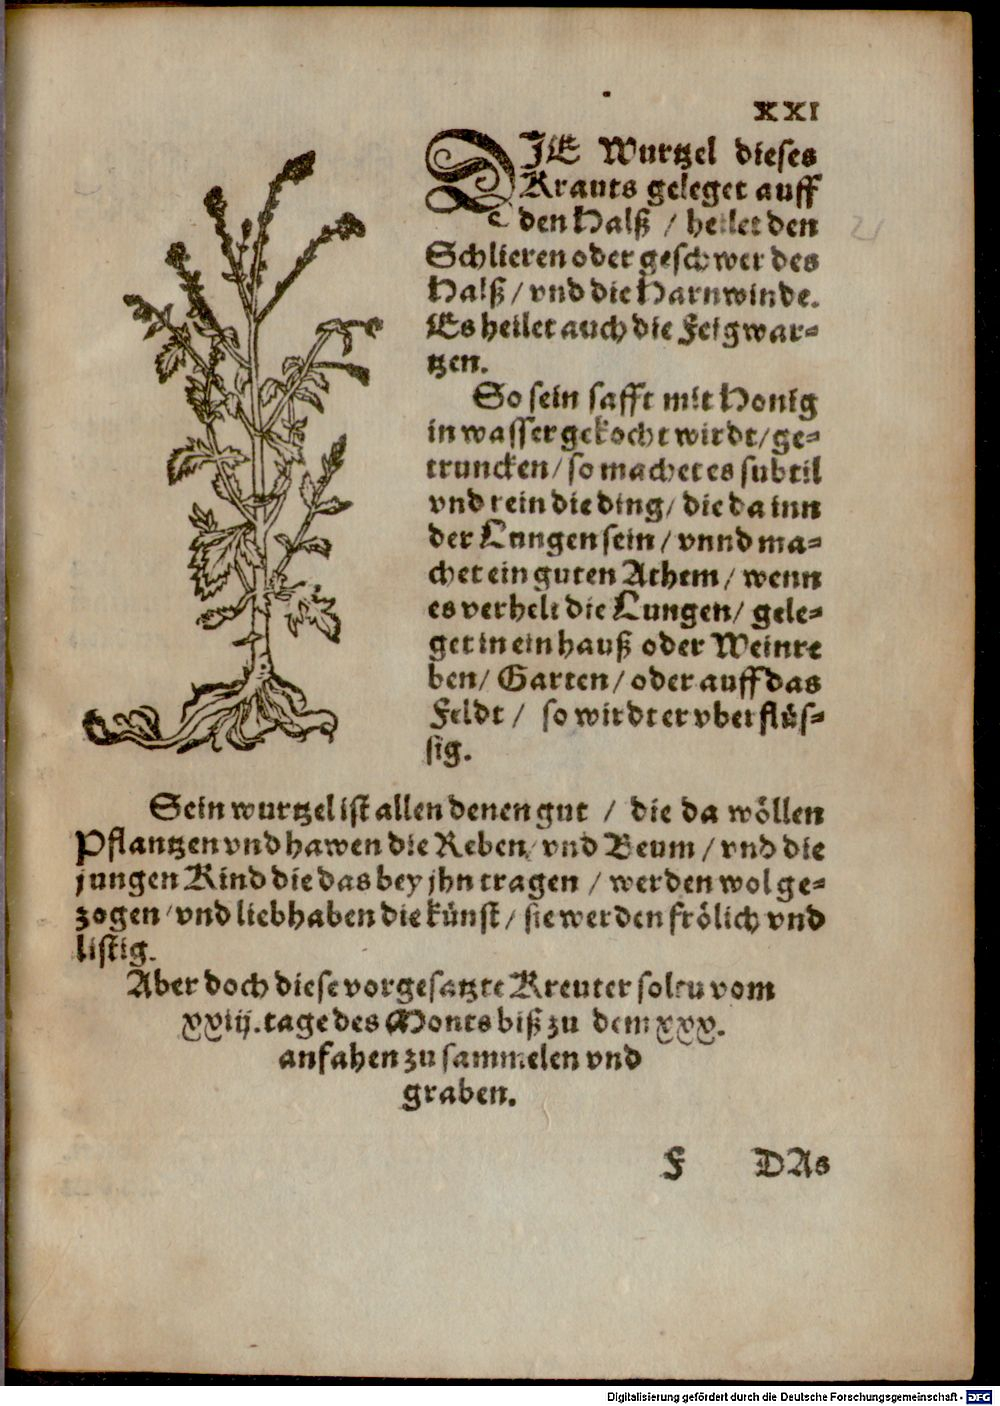 XXI
DJE Wurtzel dieses
Krauts geleget auff
den Halß / heilet den
Schlieren oder geschwer des
Halß / vnd die Harnwinde.
Es heilet auch die Feigwar-
tzen.
So sein safft mit Honig
in wasser gekocht wirdt / ge-
truncken / so machet es subtil
vnd rein die ding / die da inn
der Lungen sein / vnnd ma-
chet ein guten Athem / wenn
es verhelt die Lungen / gele-
get in ein hauß oder Weinre
ben / Garten / oder auff das
Feldt / so wirdt er vberflüs-
sig.
Sein wurtzel ist allen denen gut / die da wöllen
Pflantzen vnd hawen die Reben / vnd Beum / vnd die
jungen Kind die das bey jhn tragen / werden wol ge-
zogen / vnd liebhaben die künst / sie werden frölich vnd
listig.
Aber doch diese vorgesatzte Kreuter soltu vom
xxiij. tage des Monts biß zu dem xxx.
anfahen zu sammelen vnd
graben.
F DAs
21
Digitalisierung gefördert durch die Deutsche Forschungsgemeinschaft - DFG